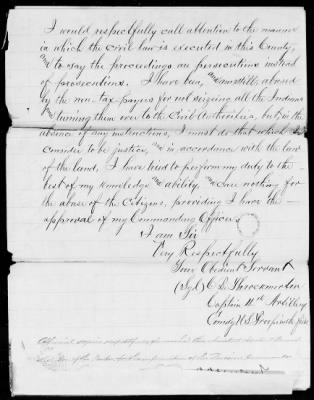 I would respectfully call attention to the manner
in which the civil law is executed in this County;
and to say the proceedings are persecutions instead
of prosecutions. I have been, and am still, abused
by the non-tax-payers for not seizing all the Indians
and turning them over to the Civil Authorities, but, in the
absence of any instructions, I must do that which I
consider to be justice, and in accordance with the law
of the land. I have tried to perform my duty to the
best of my knowledge and ability, and care nothing for
the abuse of the Citizens, providing I have the
approval of my Commanding Officer.
I am Sir
Very Respectfully
Your Obedient Servant
(Sgd) C. B. Throckmorton
Captain 4th Artillery
Comdg U.S. Troops
Official copy respectfully